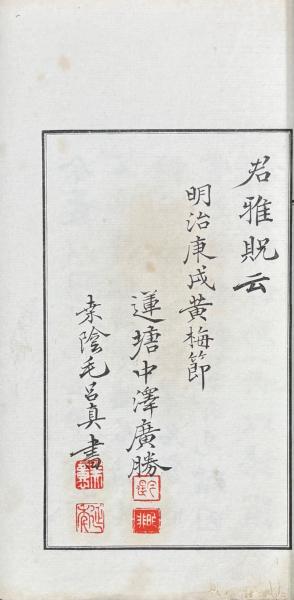 君雅貺云
明治庚戌黄梅節
蓮塘中澤廣勝
桒陰毛呂真書